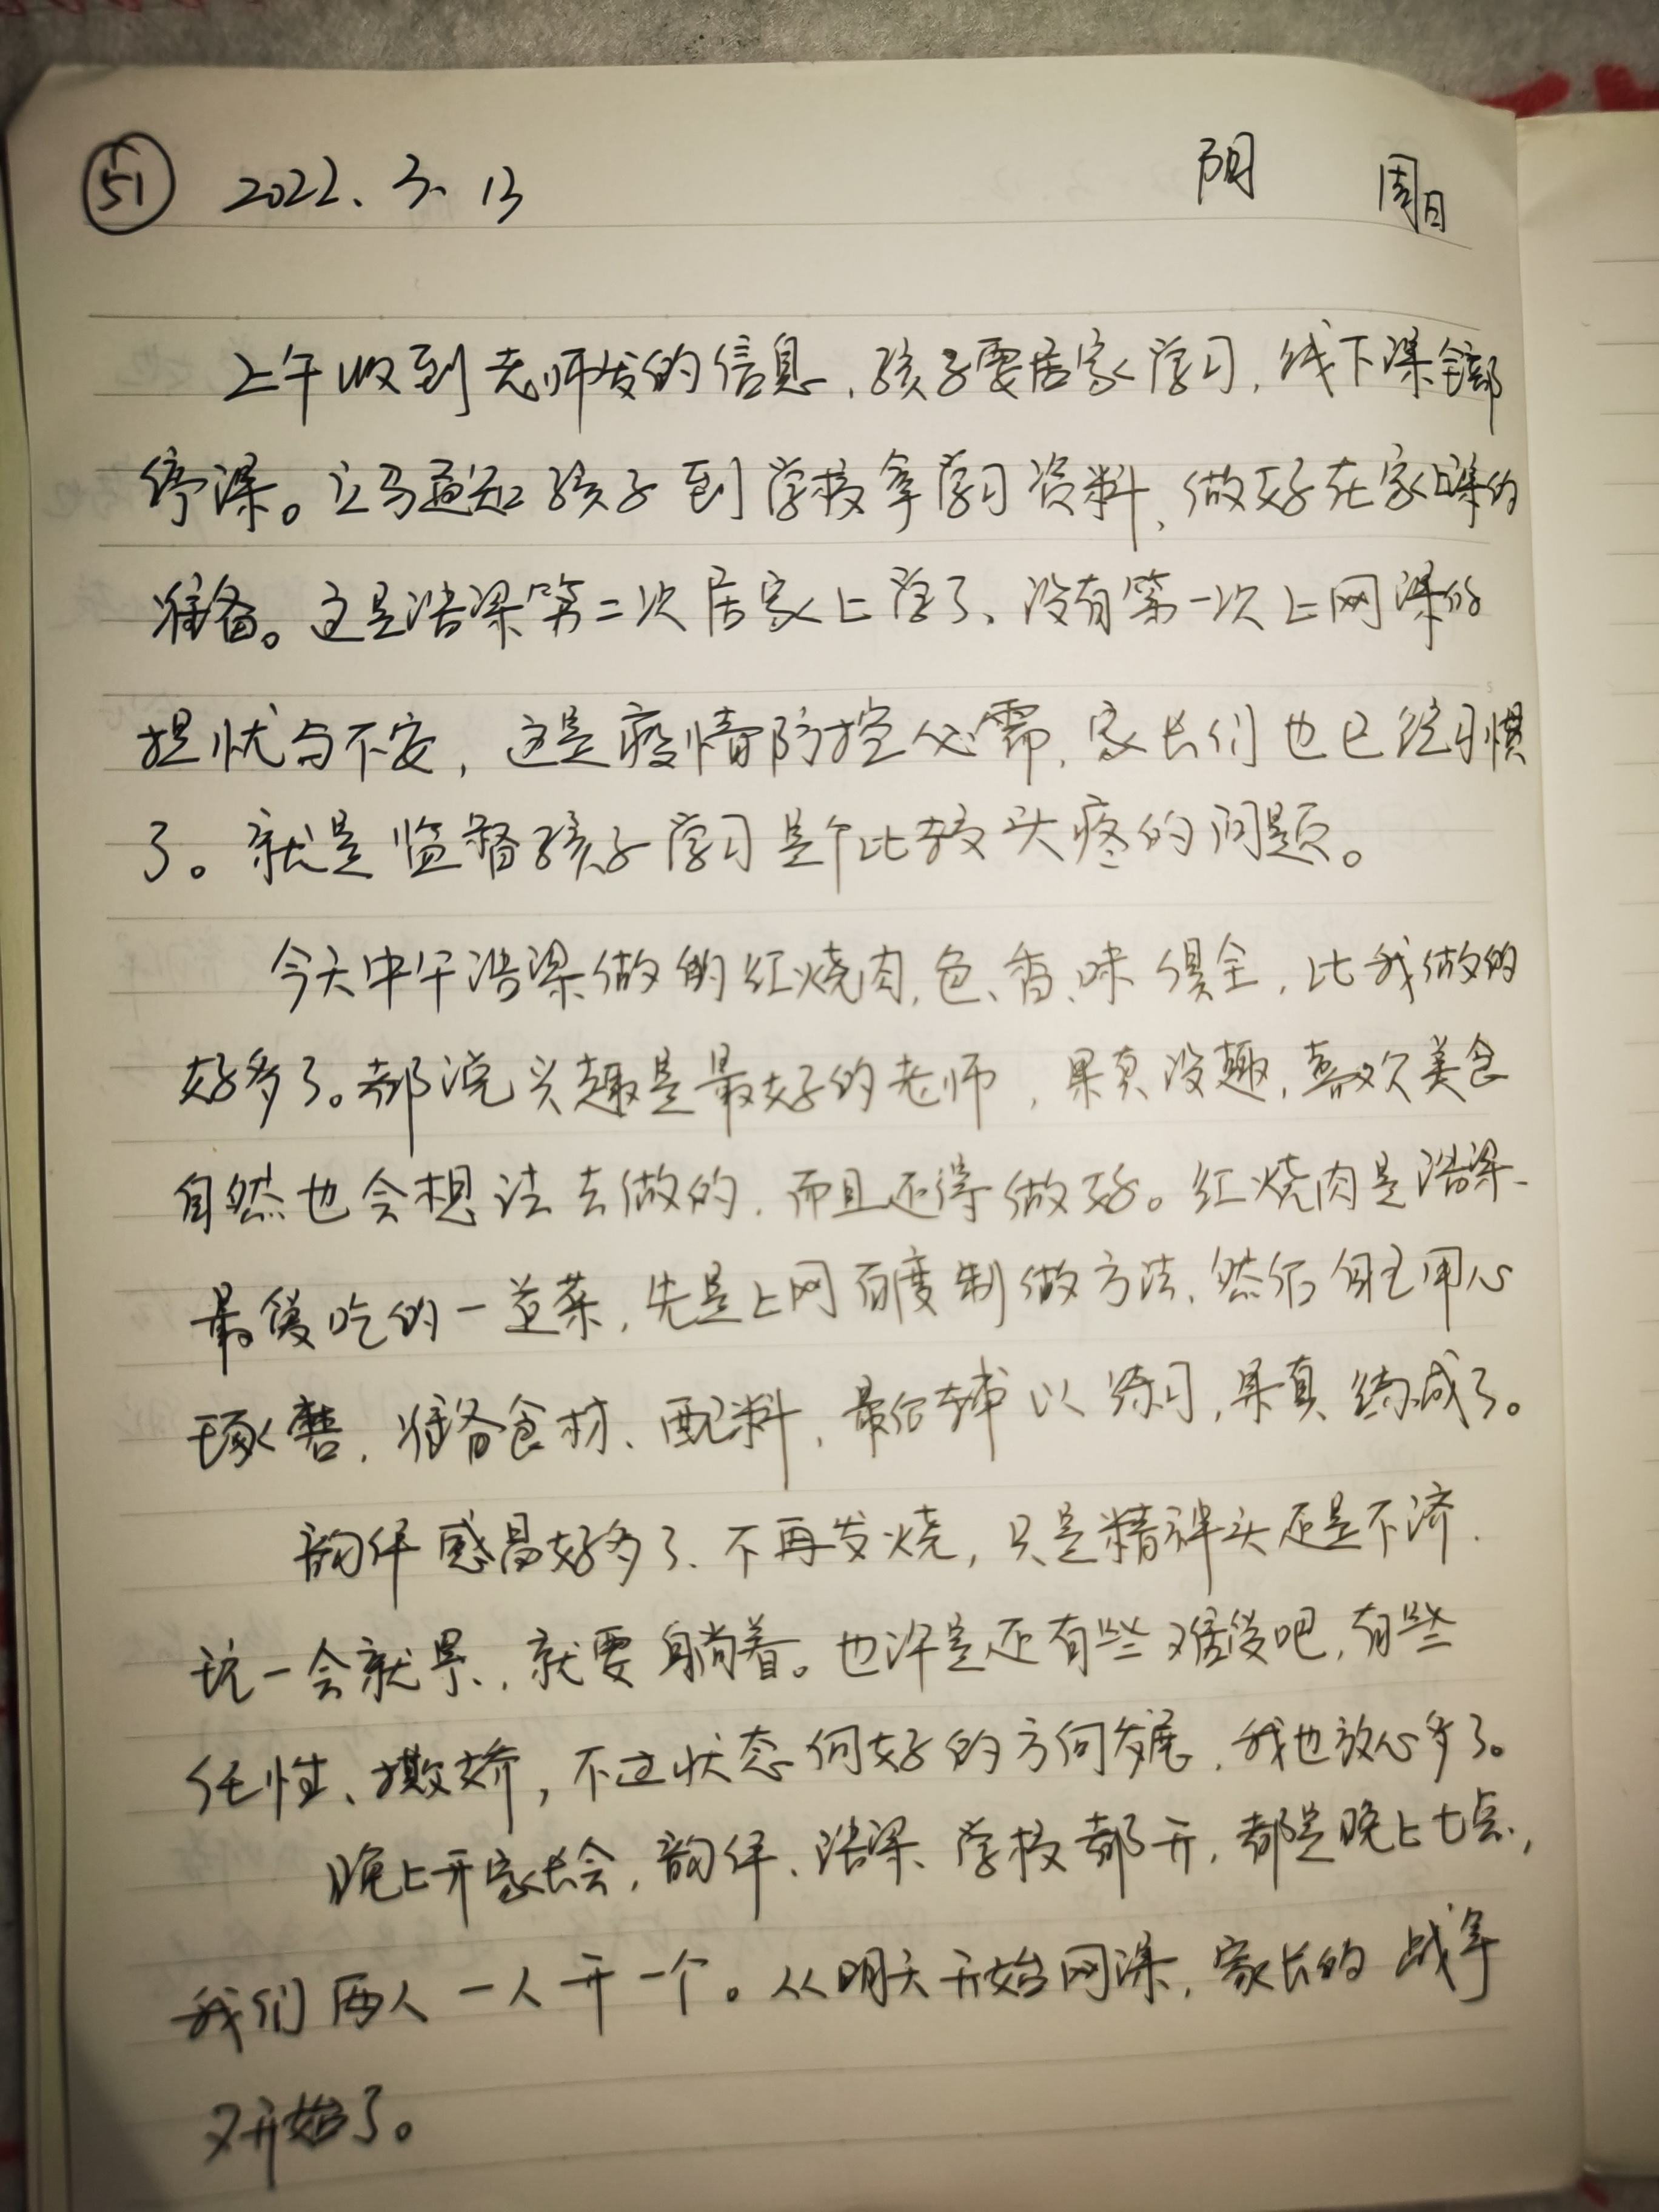 51 2022.3.13 阴 周日
上午收到老师发的信息，孩子要居家学习，线下课全部
停课。立马通知孩子到学校拿学习资料，做好在家上课的
准备。这是浩梁第二次居家上学了、没有第一次上网课的
担忧与不安，这是疫情防控必需，家长们也已经习惯
了。就是监督孩子学习是个比较头疼的问题。
今天中午浩梁做的红烧肉，色、香、味俱全，比我做的
好多了。都说兴趣是最好的老师，果真没趣，喜欢美食
自然也会想法去做的，而且还得做好。红烧肉是浩梁
最爱吃的一道菜，先是上网百度制做方法，然后自己用心
琢磨，准备食材、配料，最后辅以练习，果真练成了。
韵伴感冒好多了、不再发烧，只是精神头还是不济．
玩一会就累，就要躺着。也许是还有些难受吧，有些
任性、撒娇，不过状态向好的方向发展，我也放心多了。
晚上开家长会，韵伴、浩梁、学校都开，都是晚上七点，
我们两人一人开一个。从明天开始网课，家长的战争
又开始了。